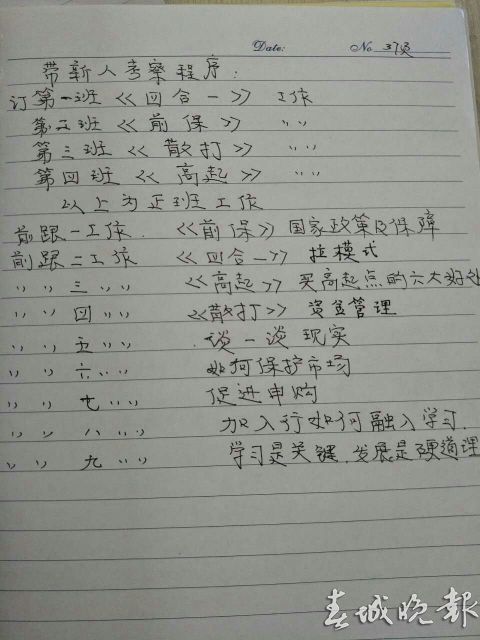 Date: No 37页
带新人考察程序:
订第一班 << 回合一 >> 工作
第二班 << 前保 >> 〃
第三班 << 散打 >> 〃
第四班 << 高起 >> 〃
以上为正班工作
前跟一工作. <<前保>> 国家政策及保障
前跟二工作 <<回合一>> 拉模式
〃 〃 三 〃 〃 <<高起>> 买高起点的六大好处
〃 〃 四 〃 〃 <<散打>> 资金管理
〃 〃 五 〃 〃 谈一谈现实
〃 〃 六 〃 〃 如何保护市场
〃 〃 七 〃 〃 促进申购
〃 〃 八 〃 〃 加入行如何融入学习.
〃 〃 九 〃 〃 学习是关键.发展是硬道理
春城晚报